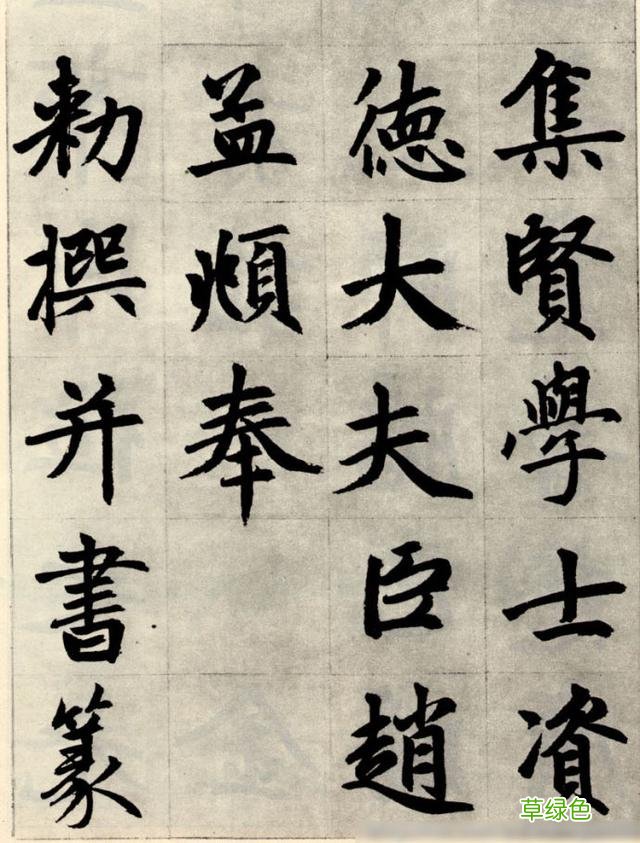 集賢學士資
德大夫臣趙
孟頫奉
勅撰并書篆
草绿色